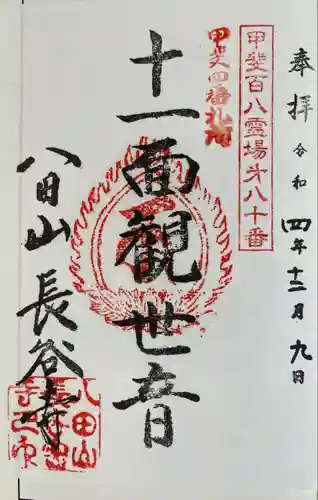 奉拝 令和四年十二月九日
甲斐百八霊場第八十番
甲斐四番札所
十一面観世音
八田山 長谷寺
八田山
長谷寺
之印